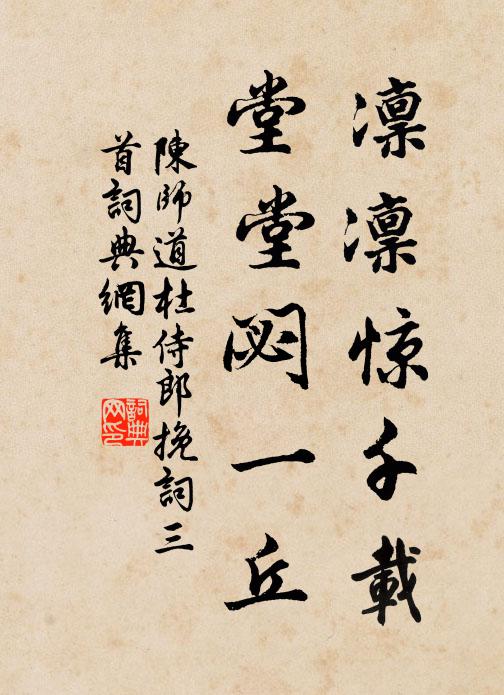 凛凛惊千載
堂堂閟一丘
陳師道杜侍郎挽詞三
首詞典網集
詞典
网印